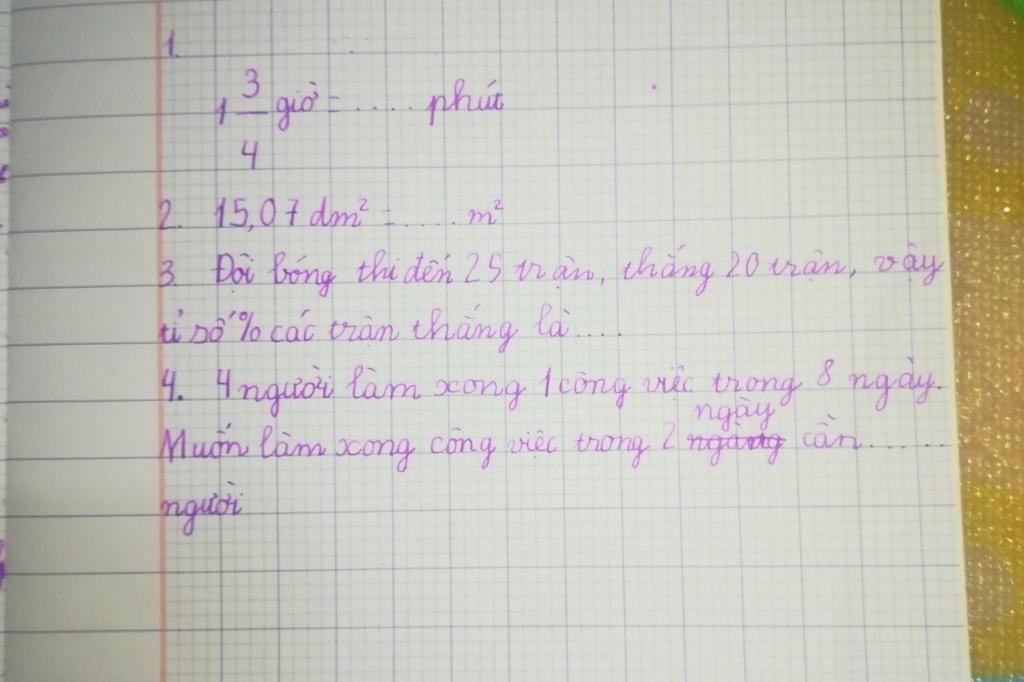 1.
1 3/4 giờ = .... phút
2. 15,07 dm² = ...... m²
3 Đội bóng thi đến 25 trận, thắng 20 trận, vậy
tỉ số % các trận thắng là ....
4. 4 người làm xong 1 công việc trong 8 ngày.
ngày
Muốn làm xong công việc trong 2 cần ......
người